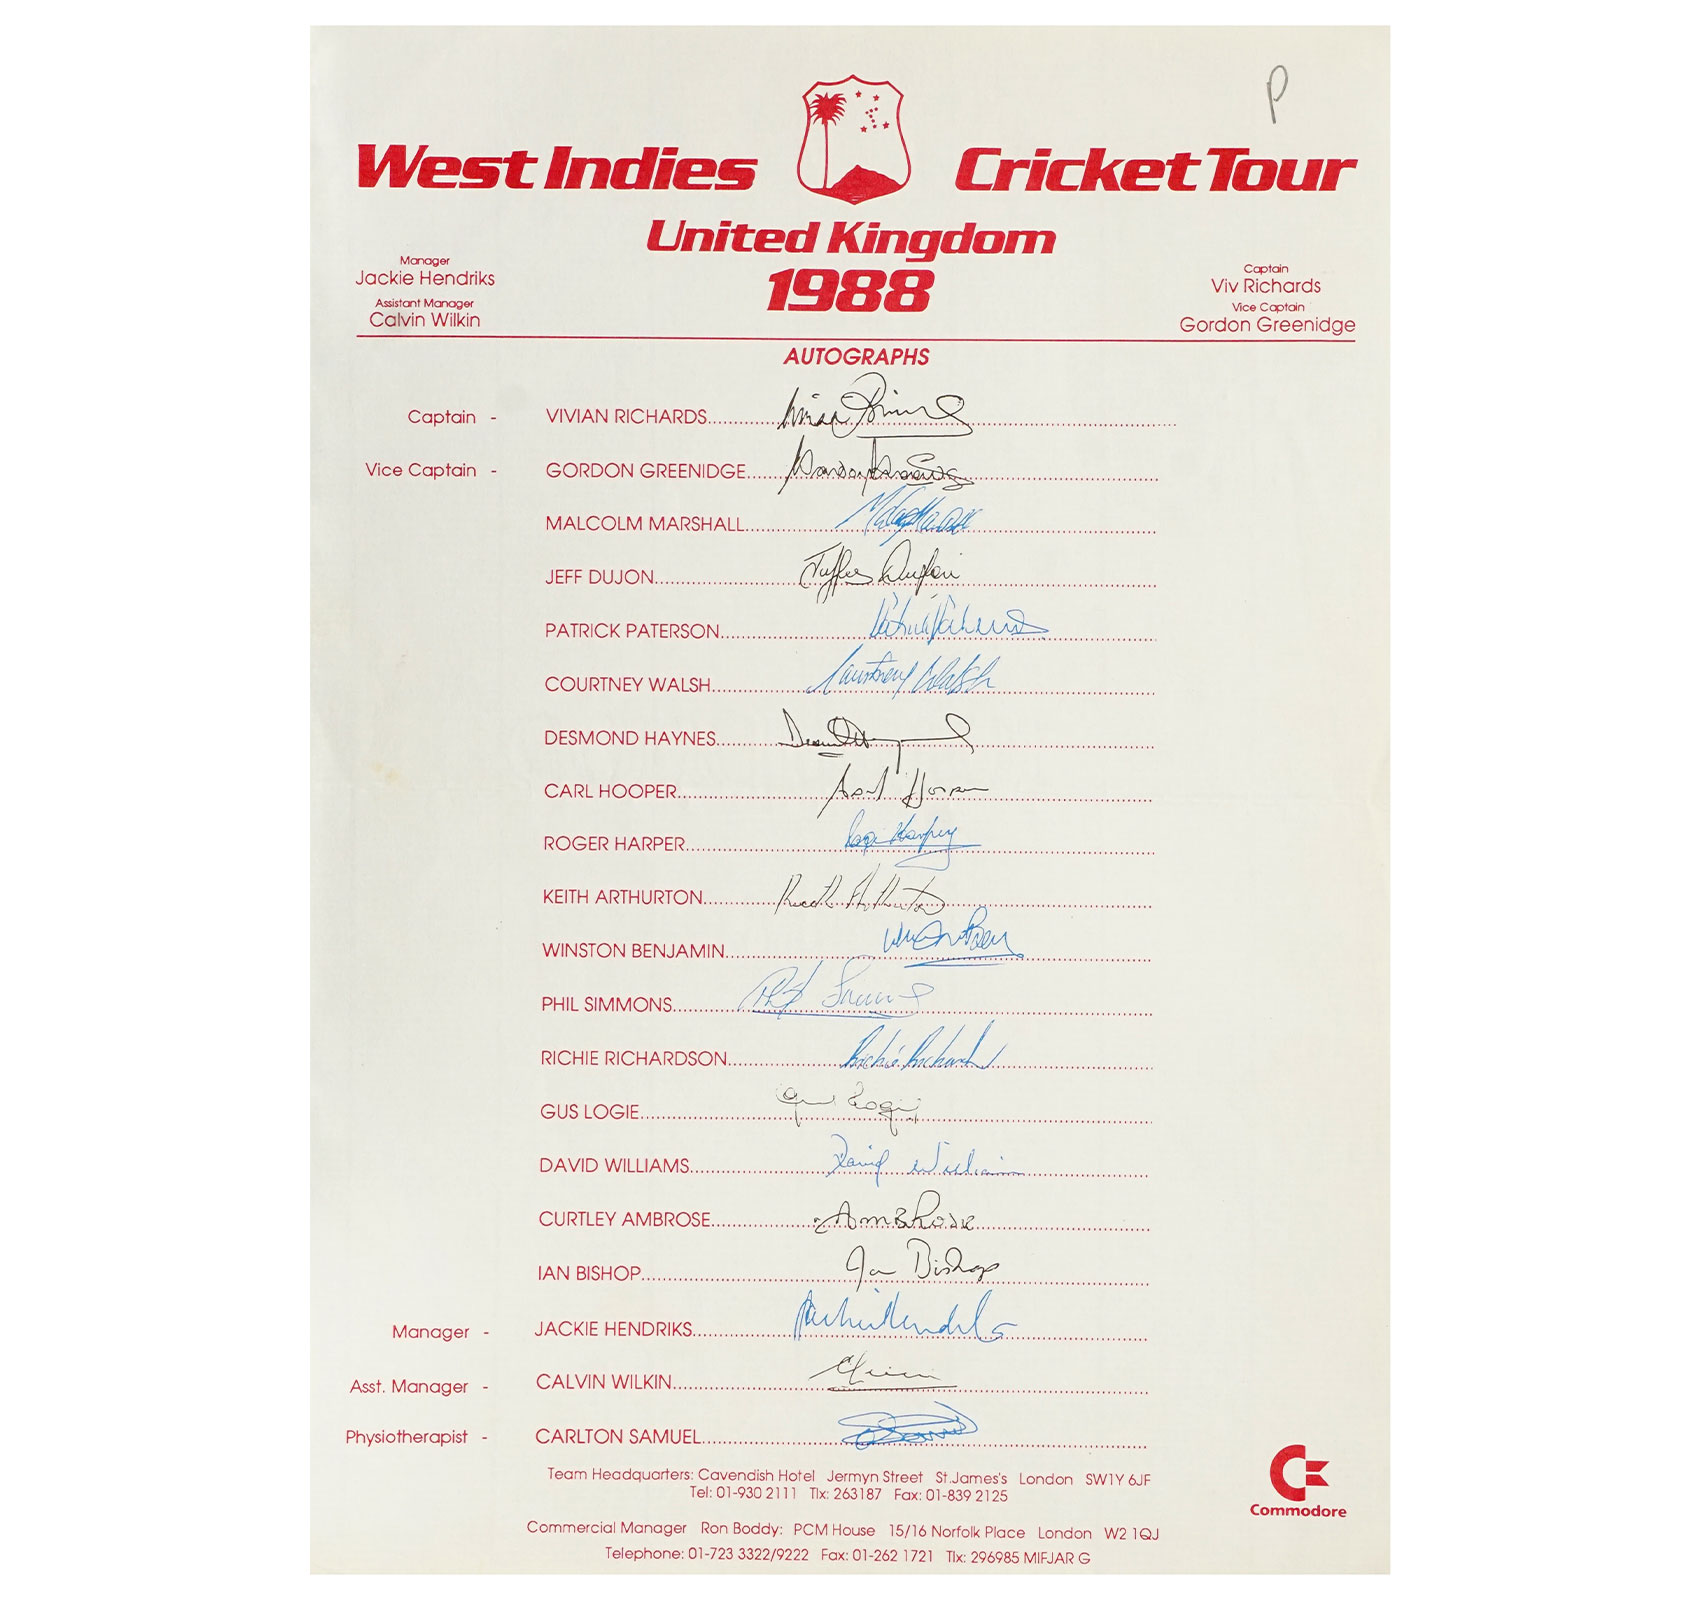 P
West Indies Cricket Tour
United Kingdom
1988
Manager
Jackie Hendriks
Assistant Manager
Calvin Wilkin
Captain
Viv Richards
Vice Captain
Gordon Greenidge
AUTOGRAPHS
Captain - VIVIAN RICHARDS
Vice Captain - GORDON GREENIDGE
MALCOLM MARSHALL
JEFF DUJON
PATRICK PATERSON
COURTNEY WALSH Courtney Walsh
DESMOND HAYNES
CARL HOOPER Carl Hooper
ROGER HARPER
KEITH ARTHURTON
WINSTON BENJAMIN
PHIL SIMMONS
RICHIE RICHARDSON
GUS LOGIE
DAVID WILLIAMS David Williams
CURTLEY AMBROSE Ambrose
IAN BISHOP Ian Bishop
Manager - JACKIE HENDRIKS Jackie Hendriks
Asst. Manager - CALVIN WILKIN
Physiotherapist - CARLTON SAMUEL
Team Headquarters: Cavendish Hotel Jermyn Street St.James's London SW1Y 6JF
Tel: 01-930 2111 Tlx: 263187 Fax: 01-839 2125
Commercial Manager Ron Boddy: PCM House 15/16 Norfolk Place London W2 1QJ
Telephone: 01-723 3322/9222 Fax: 01-262 1721 Tlx: 296985 MIFJAR G
Commodore